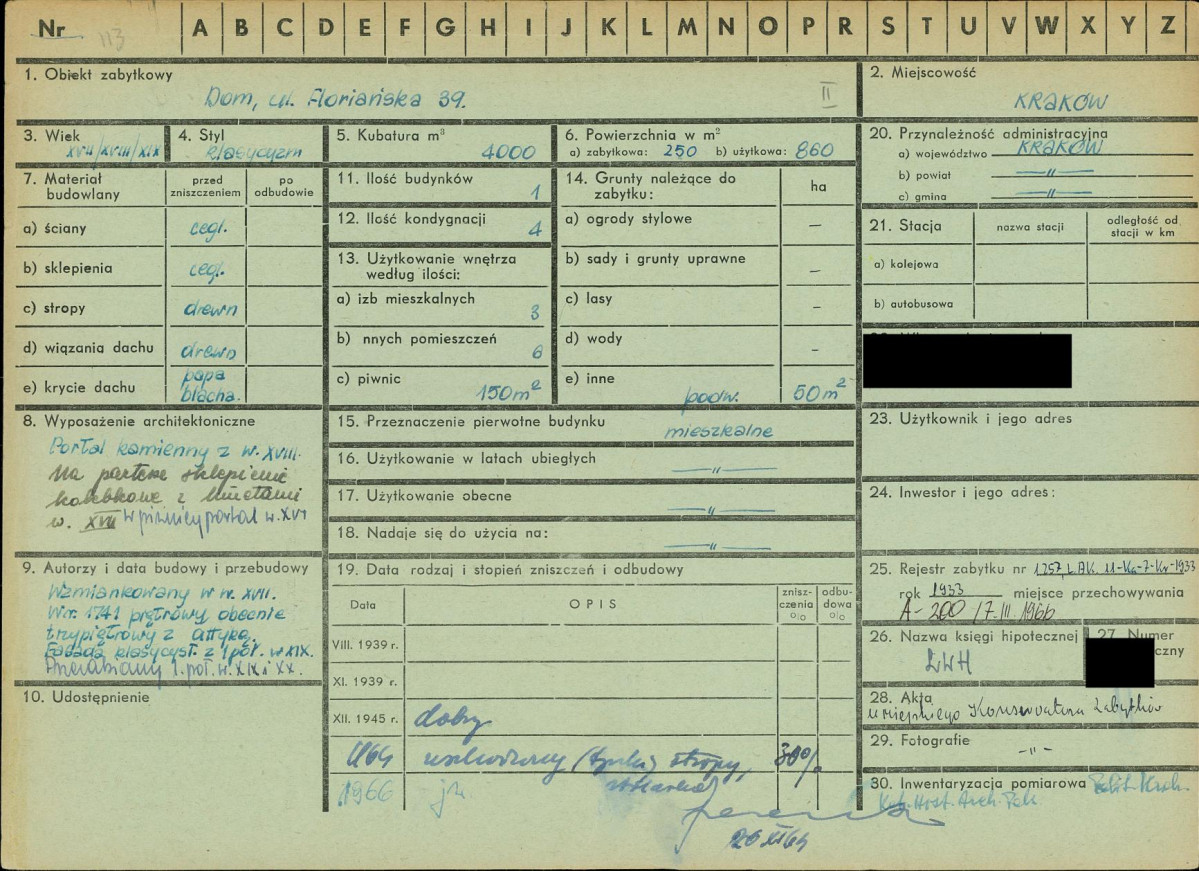 Nr 113 A B C D E F G H I J K L M N O P R S T U V W X Y Z
1. Obiekt zabytkowy
Dom, ul. Floriańska 39. II
2. Miejscowość
KRAKÓW
3. Wiek
XVII/XVIII/XIX
4. Styl
klasycyzm
5. Kubatura m³
4000
6. Powierzchnia w m²
a) zabytkowa: 250 b) użytkowa: 860
20. Przynależność administracyjna
a) województwo KRAKÓW
b) powiat —"—
c) gmina —"—
7. Materiał budowlany
przed zniszczeniem
po odbudowie
a) ściany cegl.
b) sklepienia cegl.
c) stropy drewn
d) wiązania dachu drewn
e) krycie dachu papa blacha.
11. Ilość budynków 1
12. Ilość kondygnacji 4
13. Użytkowanie wnętrza według ilości:
a) izb mieszkalnych 3
b) nnych pomieszczeń 6
c) piwnic 150 m²
14. Grunty należące do zabytku: ha
a) ogrody stylowe —
b) sady i grunty uprawne —
c) lasy —
d) wody —
e) inne podw. 50 m²
21. Stacja
nazwa stacji
odległość od stacji w km
a) kolejowa
b) autobusowa
8. Wyposażenie architektoniczne
Portal kamienny z w. XVIII.
Na parterze sklepienie
kolebkowe z lunetami
w. XVII W piwnicy portal w. XVI
15. Przeznaczenie pierwotne budynku
mieszkalne
16. Użytkowanie w latach ubiegłych
—"—
17. Użytkowanie obecne
—"—
18. Nadaje się do użycia na:
—"—
23. Użytkownik i jego adres
24. Inwestor i jego adres:
9. Autorzy i data budowy i przebudowy
Wzmiankowany w w. XVII.
W r. 1741 piętrowy obecnie
trzypiętrowy z attyką.
Fasada klasycyst. z 1 poł. w XIX.
Przerabiany 1. poł. w. XIX i XX.
10. Udostępnienie
19. Data rodzaj i stopień zniszczeń i odbudowy
Data
OPIS
znisz-czenia %
odbu-dowa %
VIII. 1939 r.
XI. 1939 r.
XII. 1945 r. dobry
1964 uszkodzony (tynki) stropy, 30%
stolarka
1966 jw.
26 XI 64
25. Rejestr zabytku nr 1257, L.AK. 11-Ka-7-Kr-1933
rok 1933 miejsce przechowywania
A-200 / 7.III 1966
26. Nazwa księgi hipotecznej
LWH
27. Numer
czny
28. Akta
Miejskiego Konserwatora Zabytków
29. Fotografie
—"—
30. Inwentaryzacja pomiarowa Polit. Krak.
Kat. Hist. Arch. Pol.